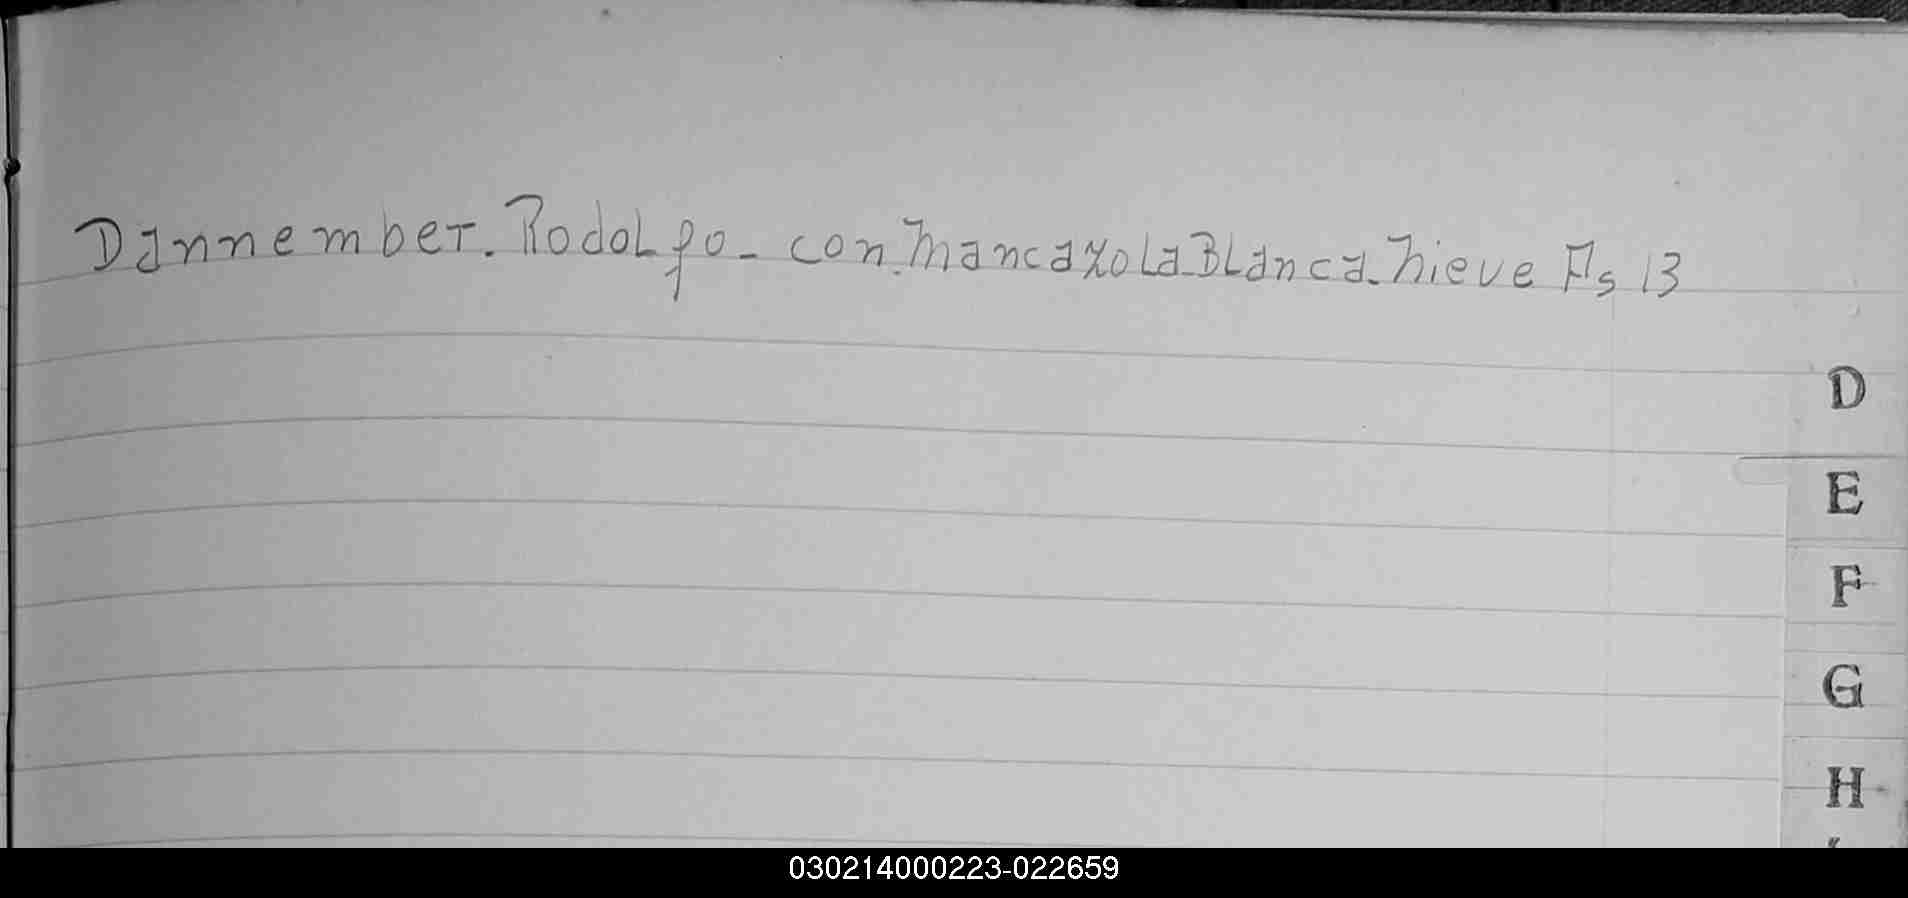 Dannember. Rodolfo - con. Mancaxola Blanca. Nieve Fs 13
D
E
F
G
H
030214000223-022659